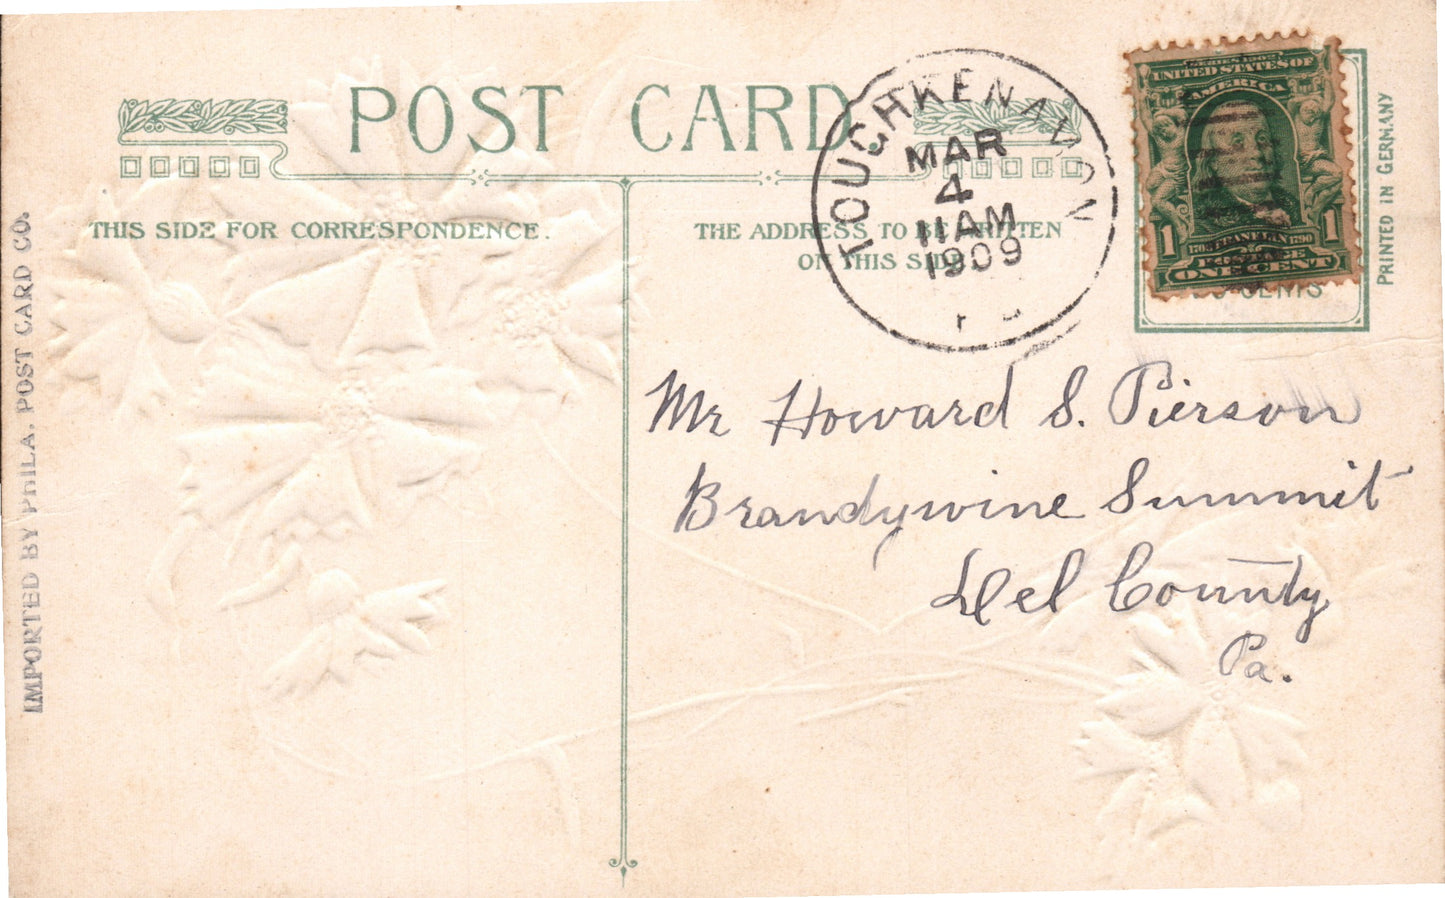 POST CARD
THIS SIDE FOR CORRESPONDENCE.
THE ADDRESS TO BE WRITTEN
ON THIS SIDE
TOUGHKENAMON
MAR
4
11 AM
1909
SERIES 1902
UNITED STATES OF
AMERICA
1 1
FRANKLIN
POSTAGE
ONE CENT
CENTS
PRINTED IN GERMANY
IMPORTED BY PHILA. POST CARD CO.
Mr Howard S. Pierson
Brandywine Summit
Del County
Pa.